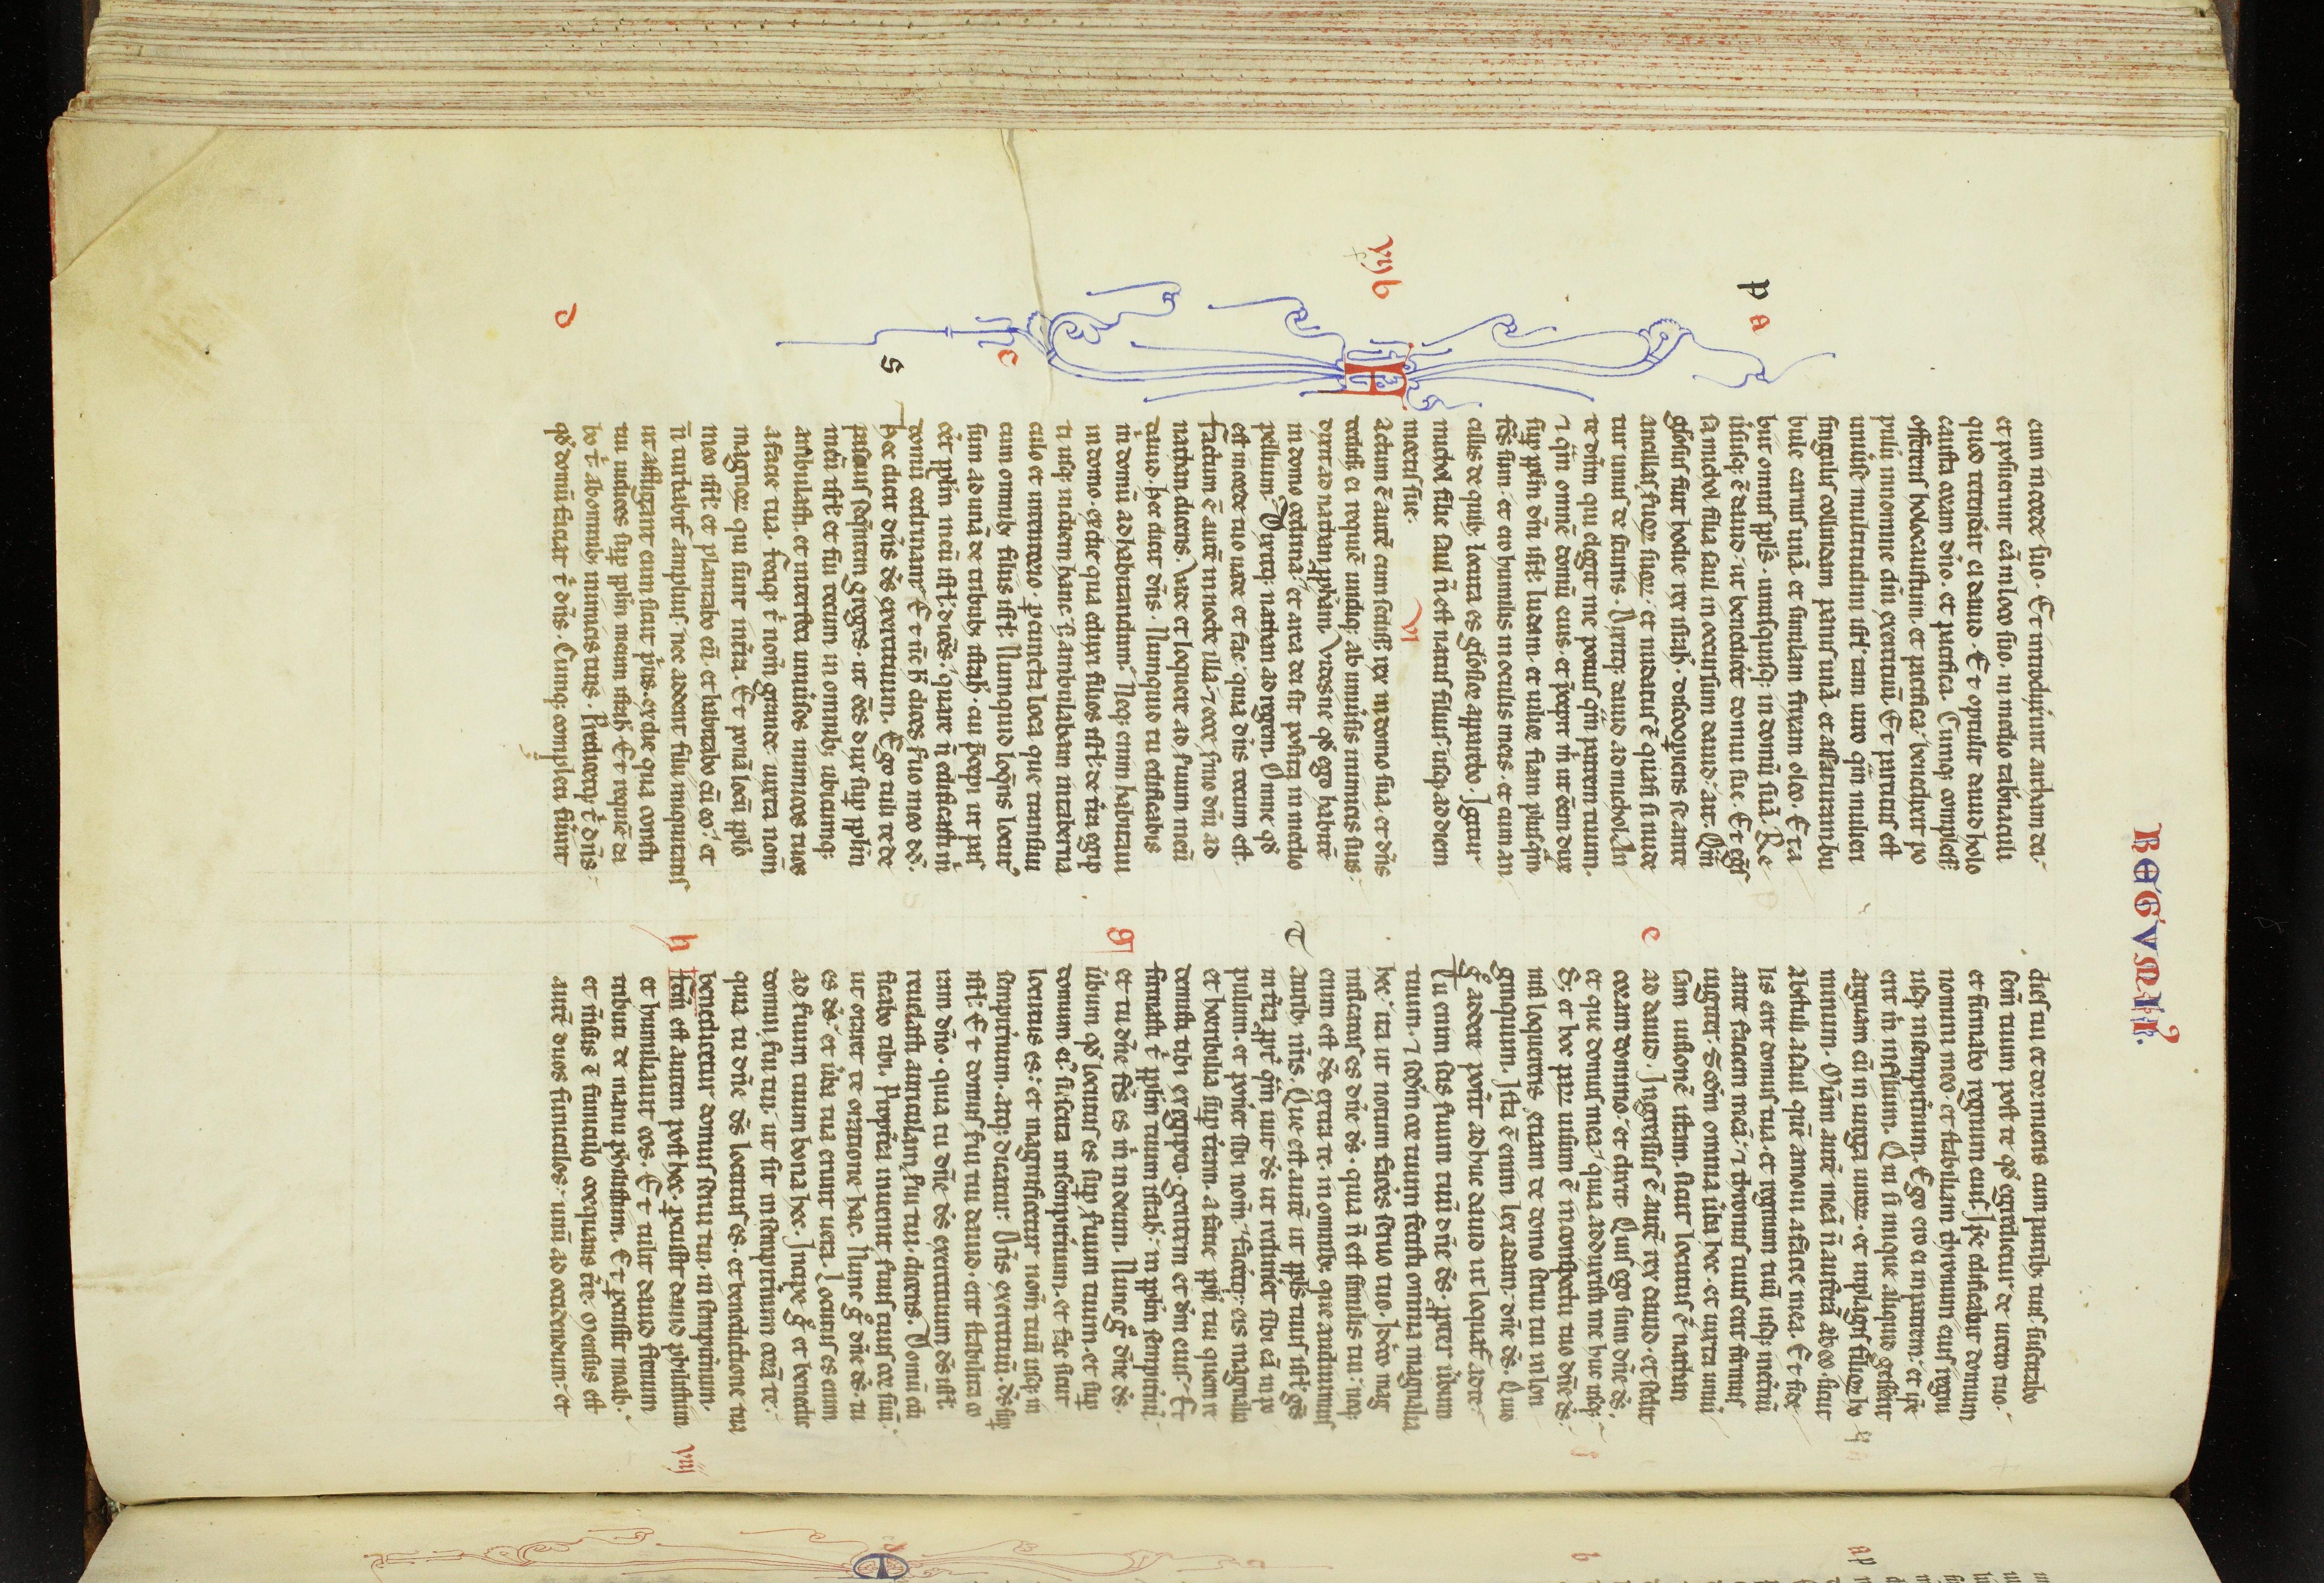 REGVM II
cum in corde suo. Et introduxerunt archam dei.
et posuerunt eā in loco suo. in medio tab̄naculi
quod tetendit ei dauid. Et optulit dauid holo
causta coram dño. et pacifica. Cumq; complesset
offerens holocaustum et pacifica: benedixit po
pulo in nomine dñi exercituū. Et partitus est
uniuse multitudini isrl tam uiro q̄m mulieri
singulis collirdam panis unā. et assaturam bu
bule carnis unā. et similam frixam oleo. Et a
biit omnis ppl̄s. unusquisq; in domū suā. Re
uersusq; ē dauid. ut benediceret domui sue. Et egr̄s
sa michol filia saul in occursum dauid. ait. Qm̄
gl̄osus fuit hodie rex israh̄l. discooperiens se ante
ancillas suor̄ suor̄. et nudatus ē quasi si nude
tur unus de scurris. Dixitq; dauid ad michol. An
te dñm qui elegit me potius q̄m patrem tuum.
⁊ q̄m omnē domū eius. et p̄cepit m̄ ut eēm dux
sup pplm̄ dñi isrl: ludam. et uilior fiam plusq̄m
fcs̄ sum. et ero humilis in oculis meis. et cum an
cillis de quib; locuta es gl̄osior apparebo. Igitur
michol filie saul n̄ est natus filius. usq; ad diem
mortis sue.
vi
vij
Factum ē autē cum sedisset rex in domo sua. et dñs
dedisset ei requiē undiq; ab uniuersis inimicis suis:
dixit ad nathan pph̄am. Videsne qđ ego habitē
in domo cedrina: et arca dei sit posita in medio
pellium. Dixitq; nathan ad regem. Omne qđ
est in corde tuo uade et fac. quia dñs tecum est.
Factum ē autē in nocte illa. ⁊ ecce smo dñi ad
nathan dicens. Vade et loquere ad suum meū
dauid. Hec dicit dñs. Numquid tu edificabis
m̄ domū ad habitandum. Neq; enim habitaui
in domo. ex die qua eduxi filios isrl de tra egip
ti usq; in diem hanc. s; ambulabam in taberna
culo et in tentorio. p cuncta loca que transiui
cum omnib; filiis isrl. Numquid loq̄ns locut'
sum ad unā de tribub; israh̄l. cui p̄cepi ut pas
ceret pplm̄ meū isrl. dices. quare n̄ edificastis m̄
domū cedrinam. Et nc̄ h̄ dices suo meo dd̄.
Hec dicit dñs ds̄ exercituum. Ego tuli te de
pascuis seq̄ntem greges. ut ēēs dux sup pplm̄
meū isrl. et fui tecum in omnib; ubicumq;
ambulasti. et interfeci uniuersos inimicos tuos
a facie tua. feciq; t̄ nom̄ grande. iuxta nom̄
magnor̄ qui sunt in tr̄a. Et ponā locū pplo
meo isrl. et plantabo eū. et habitabo cū eo. et
n̄ turbabit' amplius. nec addent filii iniquitatis
ut affligant eum sicut p̄us. ex die qua consti
tui iudices sup pplm̄ meum israh̄l. Et requiē da
bo t̄ ab omnib; inimicis tuis. Predicetq; t̄ dñs:
qđ domū faciat t̄ dñs. Cumq; completi fuerint
dies tui et dormieris cum patrib; tuis. suscitabo
sem̄ tuum post te qđ egredietur de utero tuo.
et firmabo regnum eius. Ip̄e edificabit domum
nomini meo. et stabiliam thronum eius regni
usq; in sempiternum. Ego ero ei in patrem. et ip̄e
erit m̄ in filium. Qui si inique aliquid gesserit
arguam eū in uirga uiror̄. et in plagis filior̄ ho
minum. Miam autē meā n̄ auferā ab eo. sicut
abstuli a saul quē amoui a facie mea. Et fide
lis erit domus tua. et regnum tuū usq; in eternū
ante faciem meā. ⁊ thronus tuus erit firmus
iugiter. Scdm̄ omnia uba hec. et iuxta uniu
sam uisionē istam. sicut locutus ē nathan
ad dauid. Ingressus ē autē rex dauid. et sedit
coram domino. et dixit. Quis ego sum dñe ds̄.
et que domus mea. quia adduxisti me huc usq;
S; et hoc paru uisum ē in conspectu tuo dñe ds̄.
nisi loquereris etiam de domo serui tui in lon
ginquum. Ista ē enim lex adam dñe ds̄. Quid
g° addere pot̄it adhuc dauid ut loquat' ad te.
Tu enim scis suum tuū dñe ds̄. ppter ubum
tuum. ⁊ scdm̄ cor tuum fecisti omnia magnalia
hec. ita ut notum faceres seruo tuo. Idcirco mag
nificatus es dñe ds̄. quia n̄ est similis tui. neq;
enim est ds̄ extra te. in omnib; que audiuimus
aurib; nr̄is. Que est autē ut ppls̄ tuus isrl gēs
in tr̄a. ppt̄ q̄m iuit ds̄ ut redimeret sibi eā in po
pulum. et poneret sibi nom̄. faceretq; eis magnalia
et horribilia sup terram. a facie ppli tui quem re
demisti tibi ex egipto. gentem et dm̄ eius. Et
firmasti t̄ pplm̄ tuum israh̄l. in pplm̄ sempiternū.
et tu dñe fcs̄ es m̄ in deum. Nunc g° dñe ds̄.
ubum qđ locutus es sup suum tuum. et sup
domum ei'. suscita in sempiternum. et fac sicut
locutus es. et magnificetur nom̄ tuū usq; in
sempiternum. atq; dicatur. Dñs exercituū. ds̄ sup
isrl. Et domus sui tui dauid. erit stabilita co
ram dño. quia tu dñe ds̄ exercituum. ds̄ isrl.
reuelasti auriculam sui tui. dicens. Domū edi
ficabo tibi. Propt̄ea inuenit suus tuus cor suū.
ut oraret te oratione hac. Nunc g° dñe ds̄. tu
es ds̄. et uba tua erunt uera. Locutus es enim
ad suum tuum bona hec. Incipe g° et benedic
domui sui tui. ut sit in sempiternum corā te.
quia tu dñe ds̄ locutus es. et benedictione tua
benedicetur domus serui tui. in sempiternum.
viij
Fcm̄ est autem post hec. pcussit dauid philistiim
et humiliauit eos. Et tulit dauid frenum
tributi de manu philistiim. Et pcussit moab.
et m̄sus ē funiculo coequans tr̄e. Mensus est
autē duos funiculos. unū ad occidendum. et